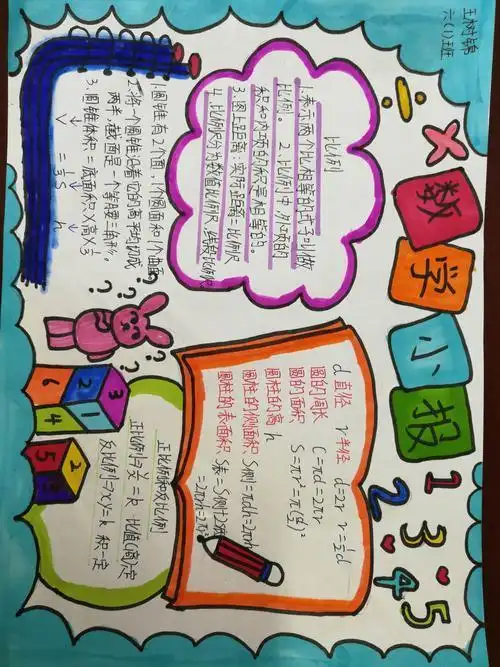 王树锦
六(1)班
数学小报
÷
×
1 2 3 4 5
比例
1.表示两个比相等的式子叫做
比例。 2.比例中,外项的
积和内项的积是相等的。
3.图上距离:实际距离=比例尺
4.比例尺分为数值比例尺、线段比例尺
1.圆锥有2个面,1个圆面积1个曲面
2.将一个圆锥沿着它的高平均切成
两半,截面是一个等腰三角形。
3.圆锥体积=底面积×高×1/3
V = 1/3 S h
? ? ? ? ?
d 直径 r 半径 d=2r r=1/2d
圆的周长 C=πd=2πr
圆的面积 S=πr²=π(d/2)²
圆柱的高 h
圆柱的侧面积 S侧=πdh=2πrh
圆柱的表面积 S表=S侧+2底
=2πrh+2πr²
正比例和反比例
正比例→y/x=k 比值(商)一定
反比例→xy=k 积一定
3
2 1
6 4
2
5 5